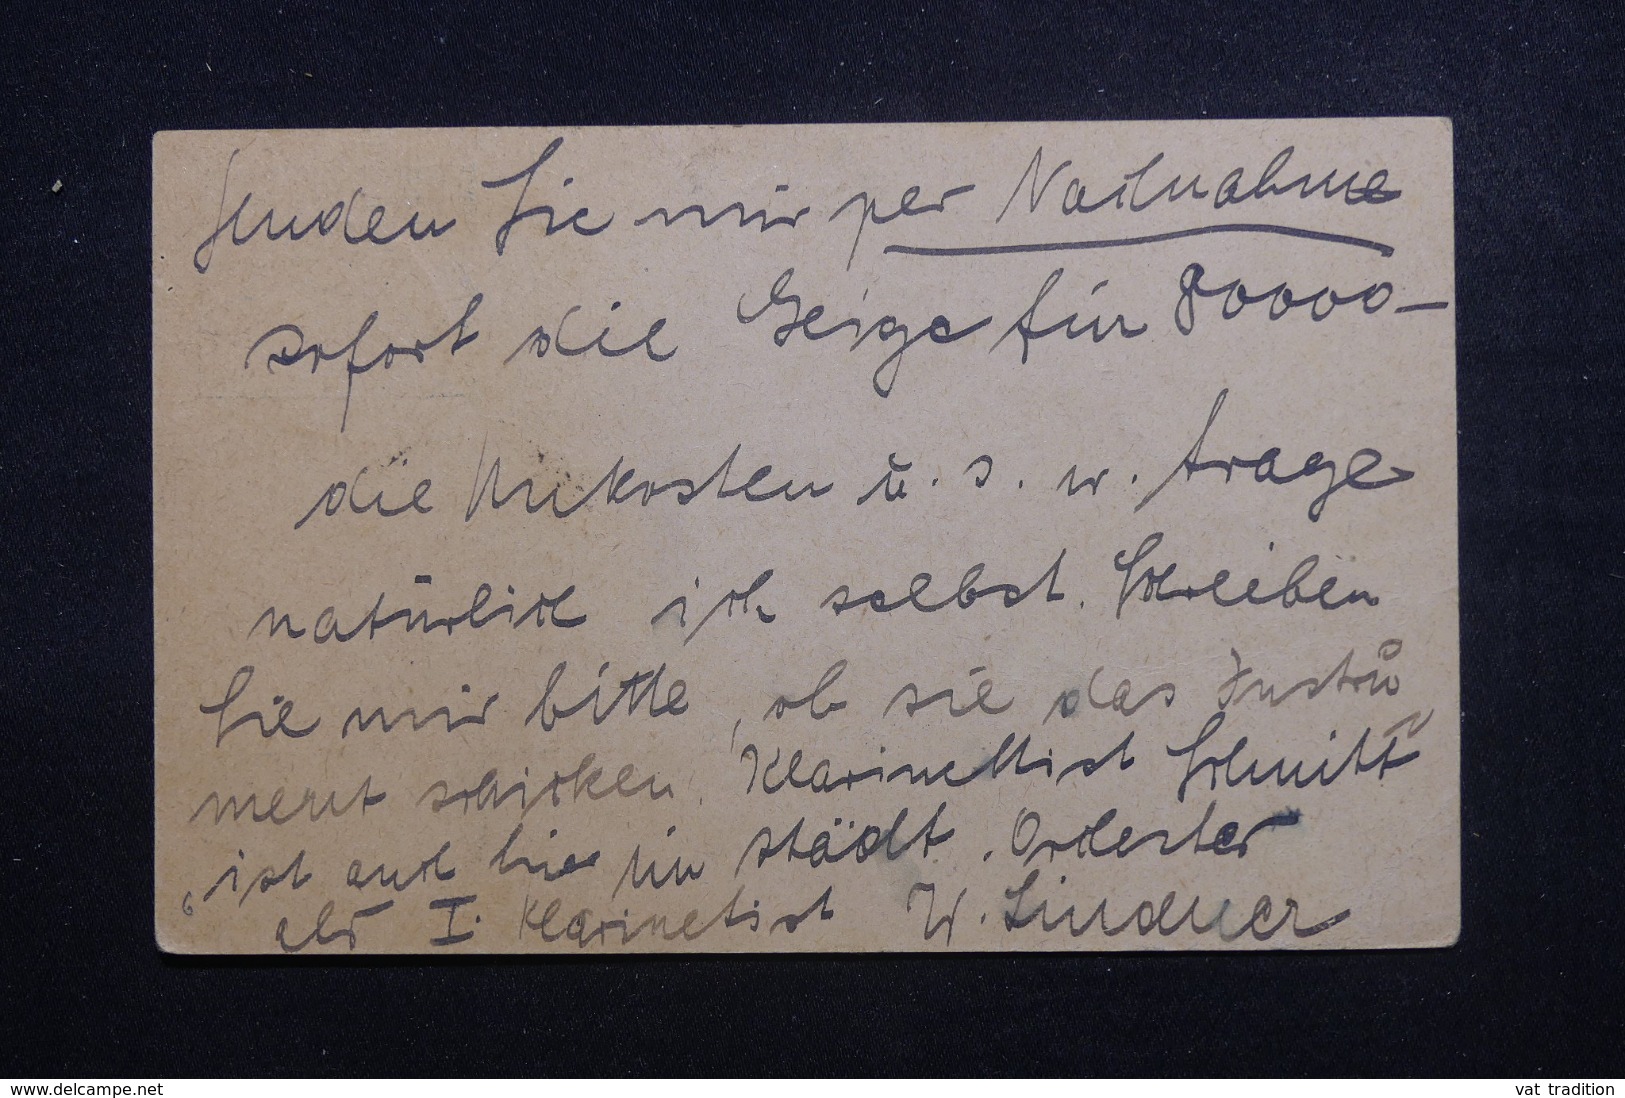 Senden Sie mir per Nachnahme
sofort die Geige für 80000–
die Unkosten u. s. w. trage
natürlich ich selbst. Schreiben
Sie mir bitte, ob sie das Instru
ment schicken. Klarinettist Schmitt
ist auch hier im städt. Orchester
als I. Klarinetist W. Lindner
www.delcampe.net
vat_tradition